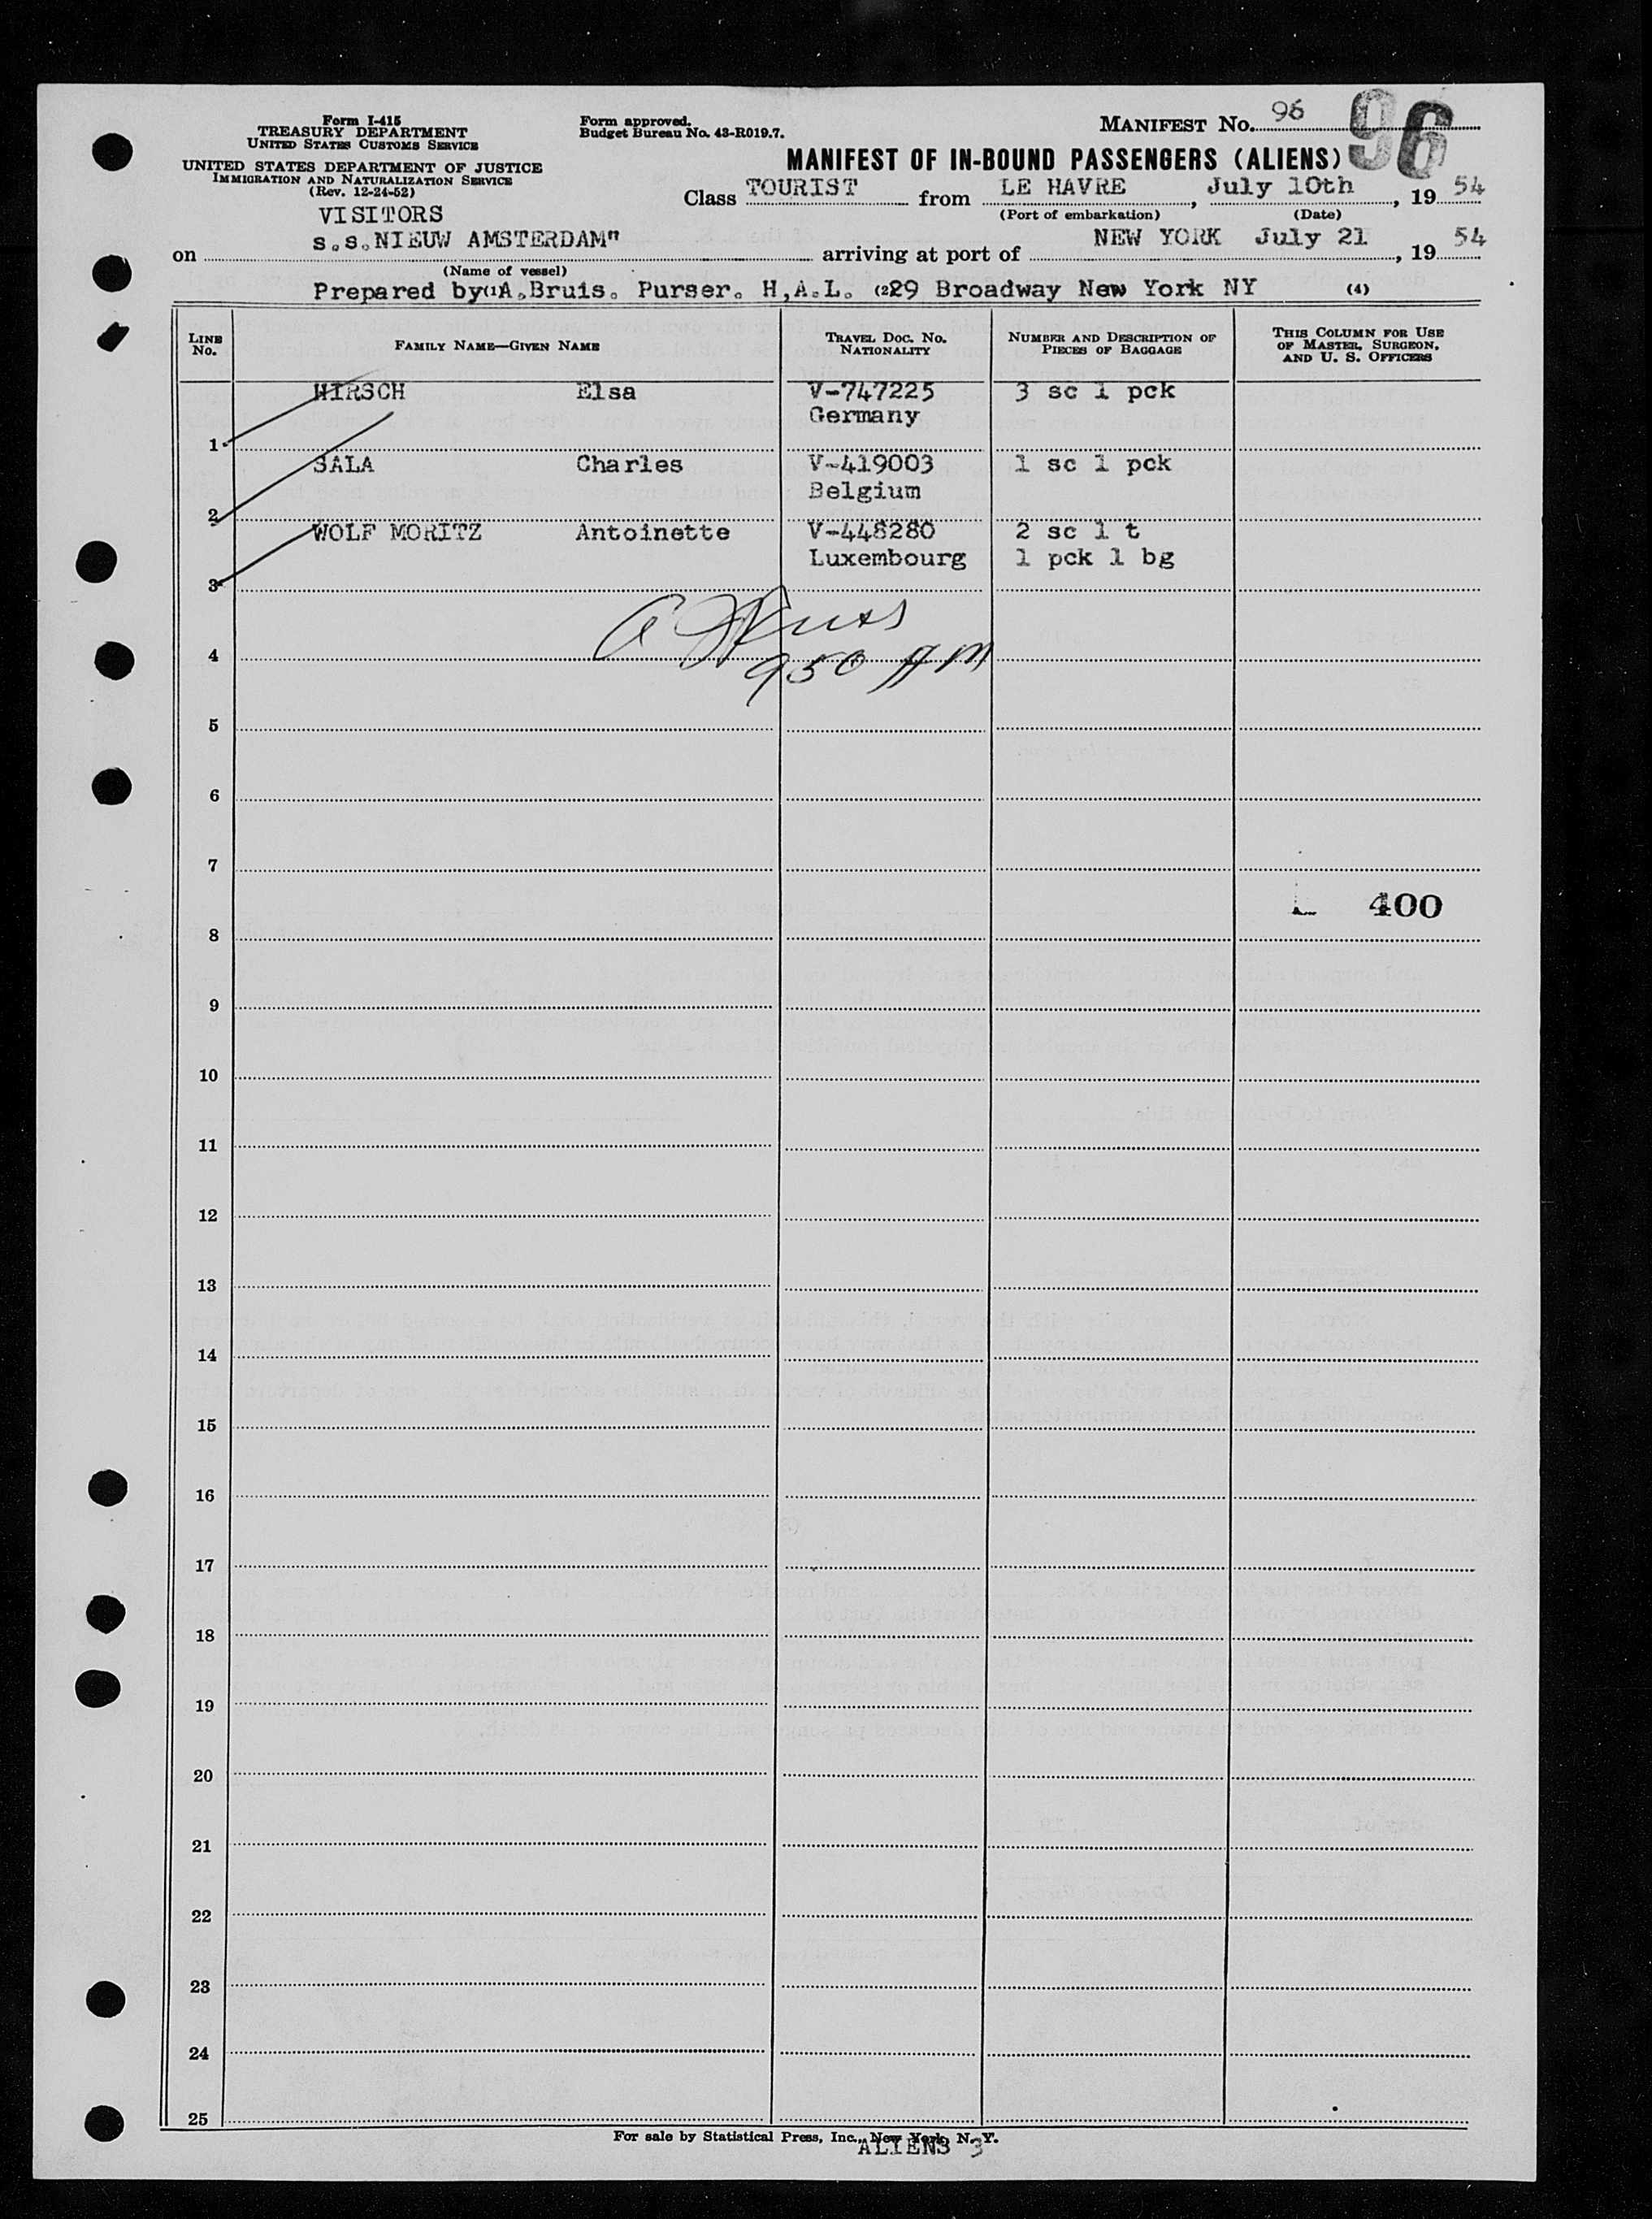 Form I-415
TREASURY DEPARTMENT
UNITED STATES CUSTOMS SERVICE
UNITED STATES DEPARTMENT OF JUSTICE
IMMIGRATION AND NATURALIZATION SERVICE
(Rev. 12-24-52)
Form approved.
Budget Bureau No. 43-R019.7.
MANIFEST No. 96 96
MANIFEST OF IN-BOUND PASSENGERS (ALIENS)
Class TOURIST from LE HAVRE, July 10th, 19 54
(Port of embarkation) (Date)
VISITORS
on s.s.NIEUW AMSTERDAM" arriving at port of NEW YORK July 21, 19 54
(Name of vessel)
Prepared by(1A.Bruis. Purser. H,A.L. (229 Broadway New York NY (4)
LINE No. FAMILY NAME—GIVEN NAME TRAVEL DOC. NO. NATIONALITY NUMBER AND DESCRIPTION OF PIECES OF BAGGAGE THIS COLUMN FOR USE OF MASTER, SURGEON, AND U. S. OFFICERS
HIRSCH Elsa V-747225 3 sc 1 pck
Germany
1
SALA Charles V-419003 1 sc 1 pck
Belgium
2
WOLF MORITZ Antoinette V-448280 2 sc 1 t
Luxembourg 1 pck 1 bg
3
4
950 AM
5
6
7
400
8
9
10
11
12
13
14
15
16
17
18
19
20
21
22
23
24
25
For sale by Statistical Press, Inc., New York, N. Y.
ALIENS 3